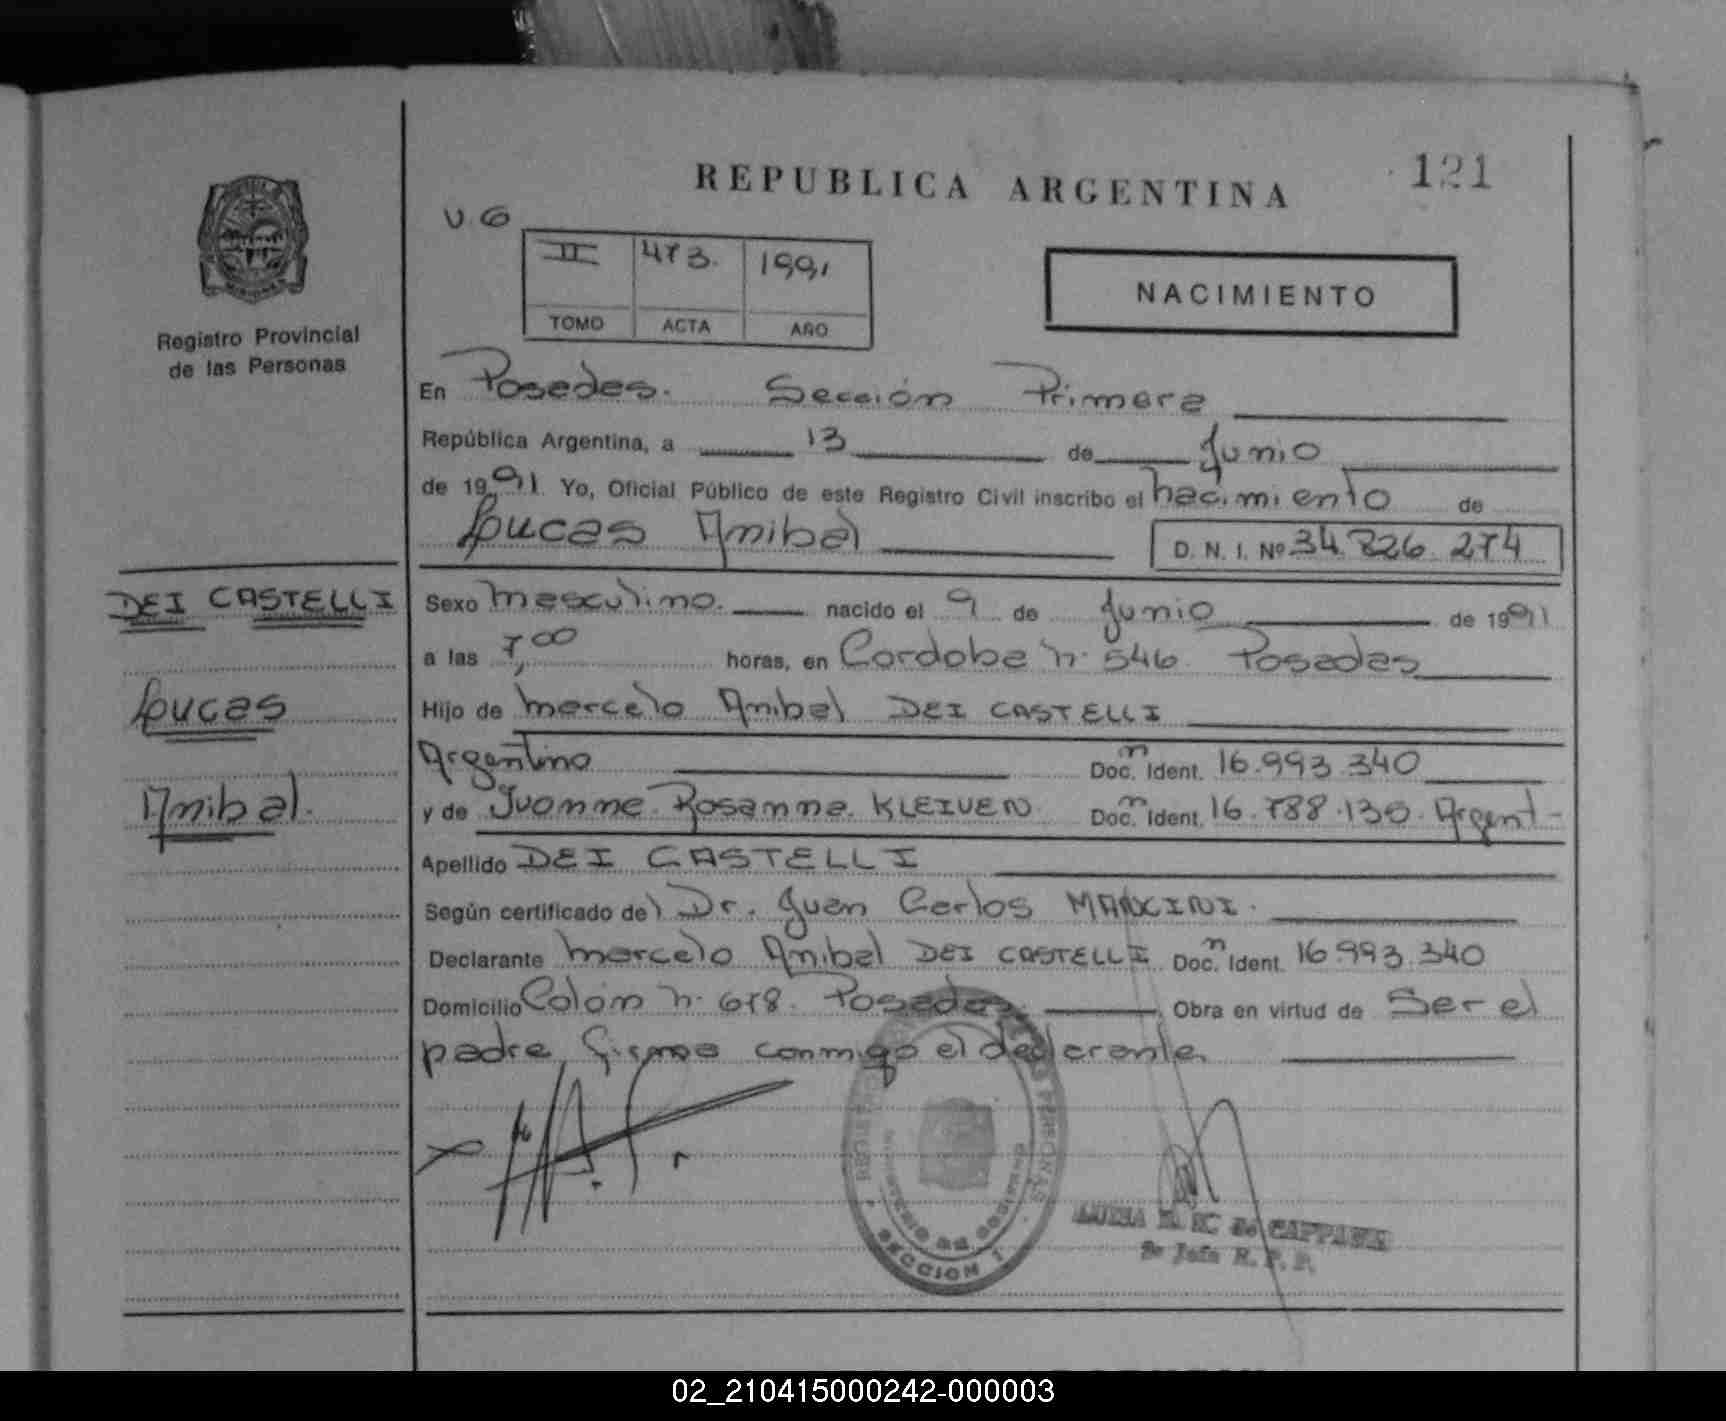 REPUBLICA ARGENTINA
121
V. G
II 473. 1991
TOMO ACTA AÑO
NACIMIENTO
MISIONES
Registro Provincial
de las Personas
En Posadas. Sección Primera
República Argentina, a 13 de Junio
de 1991. Yo, Oficial Público de este Registro Civil inscribo el nacimiento de
Lucas Anibal D. N. I. Nº 34.826.274
DEI CASTELLI
Lucas
Anibal.
Sexo masculino. nacido el 9 de Junio de 1991
a las 7,00 horas, en Cordoba n. 546. Posadas
Hijo de Marcelo Anibal DEI CASTELLI
Argentino Doc. n Ident. 16.993.340
y de Ivonne Rosanna KLEIVEN Doc. n Ident. 16.788.130. Argent-
Apellido DEI CASTELLI
Según certificado del Dr. Juan Carlos MANCINI.
Declarante Marcelo Anibal DEI CASTELLI Doc. n Ident. 16.993.340
Domicilio Colón n. 678. Posadas. Obra en virtud de Ser el
padre, firma conmigo el declarante.
REGISTRO PERSONAS
MINISTERIO DE GOBIERNO
SECCION 1
LUISA de CAPPANE
Jefe R. P. P.
02_210415000242-000003